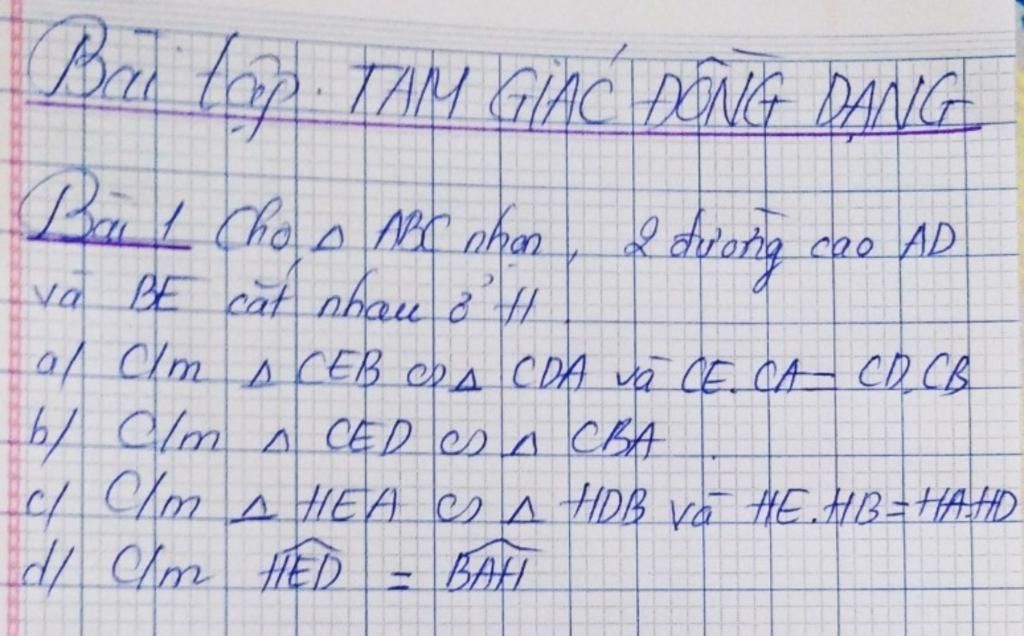 Bài tập. TAM GIÁC ĐỒNG DẠNG
Bài 1 Cho Δ ABC nhọn, 2 đường cao AD
và BE cắt nhau ở H.
a/ C/m Δ CEB ∽ Δ CDA và CE.CA = CD.CB
b/ C/m Δ CED ∽ Δ CBA.
c/ C/m Δ HEA ∽ Δ HDB và HE.HB=HA.HD
d/ C/m \widehat{HED} = \widehat{BAH}